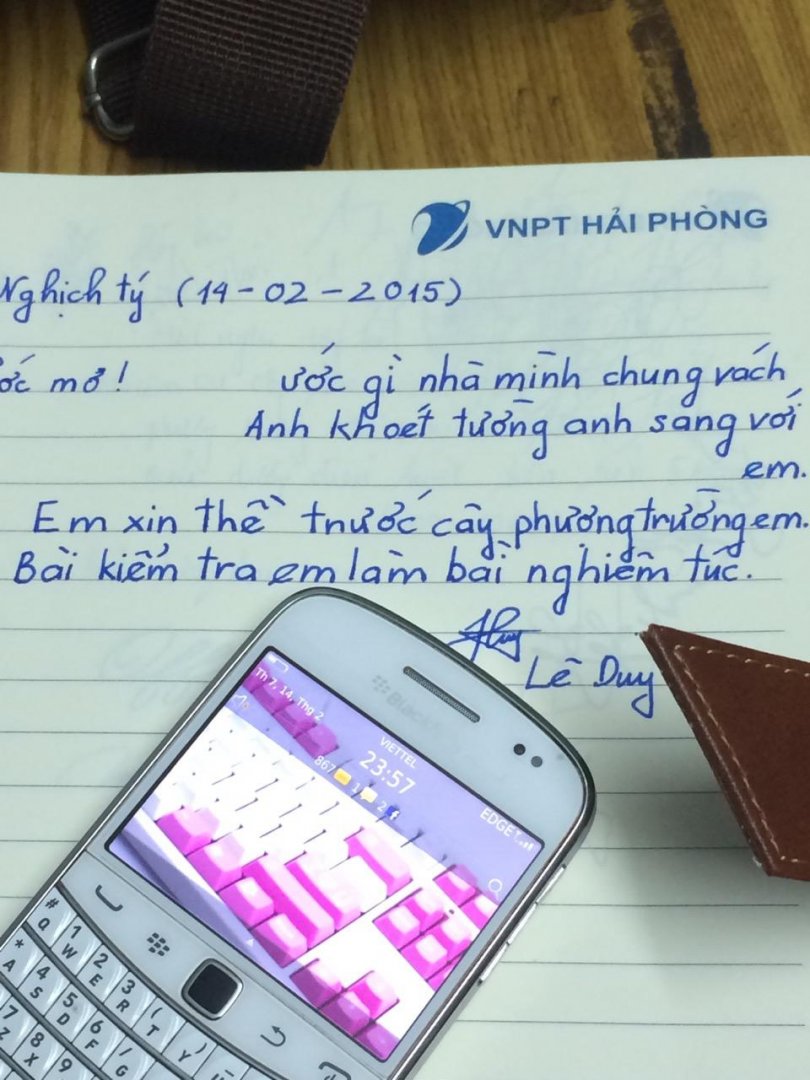 VNPT HẢI PHÒNG
Nghịch tý (14-02-2015)
ớc mơ! ước gì nhà mình chung vách
Anh khoét tường anh sang với
em.
Em xin thề trước cây phượng trường em.
Bài kiểm tra em làm bài nghiêm túc.
Lê Duy
BlackBerry
Th 7, 14, Thg 2
VIETTEL
23:57
867 1 2
EDGE
# Q 1 W 2 E 3 R ( T ) Y
* A 4 S 5 D 6 F / G
7 Z 8 X 9